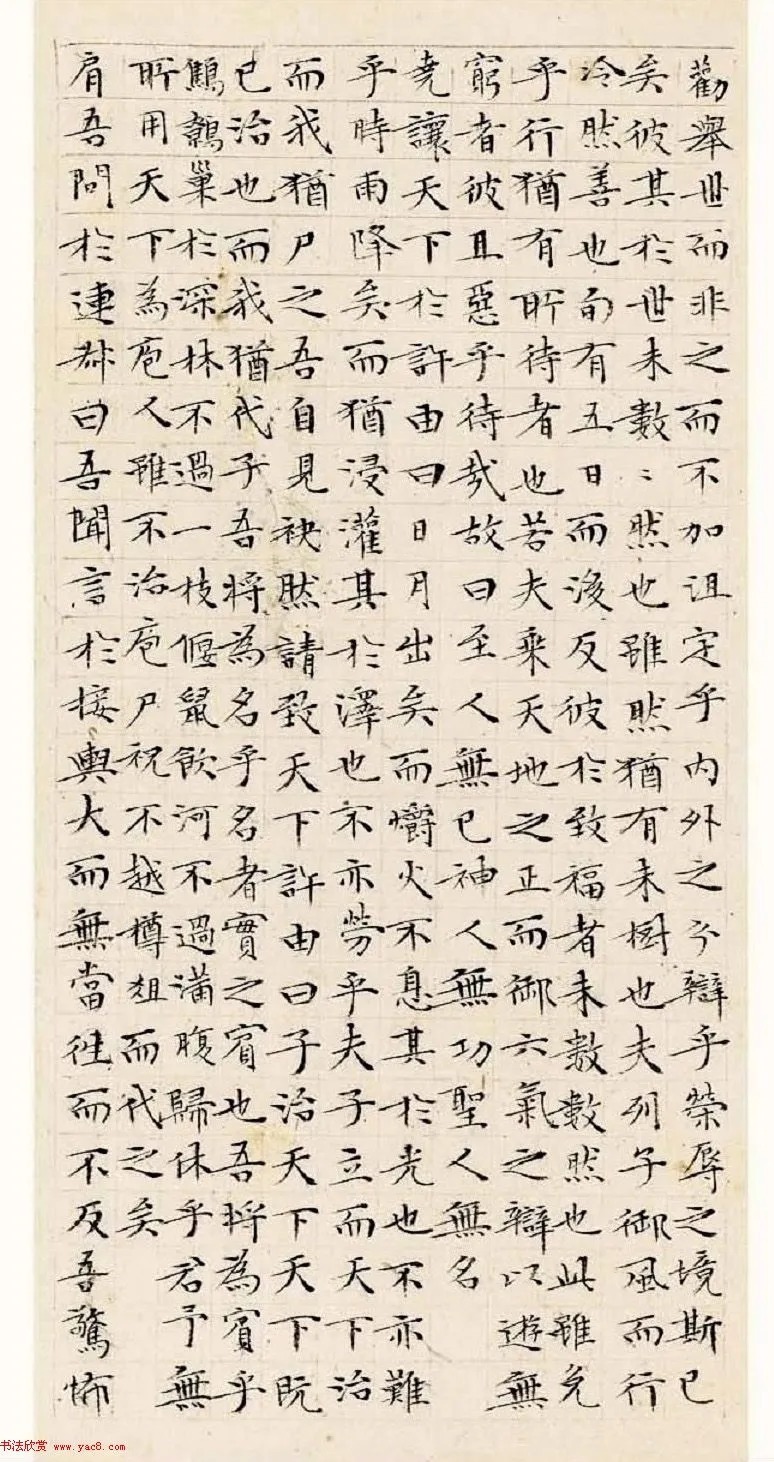 勸舉世而非之而不加沮定乎內外之分辯乎榮辱之境斯已
矣彼其於世未數〻然也雖然猶有未樹也夫列子御風而行
冷然善也旬有五日而後反彼於致福者未數數然也此雖免
乎行猶有所待者也若夫乘天地之正而御六氣之辯以遊無
窮者彼且惡乎待哉故曰至人無己神人無功聖人無名
堯讓天下於許由曰日月出矣而爝火不息其於光也不亦難
乎時雨降矣而猶浸灌其於澤也不亦勞乎夫子立而天下治
而我猶尸之吾自見缺然請致天下許由曰子治天下天下既
已治也而我猶代子吾將為名乎名者實之賓也吾將為賓乎
鷦鷯巢於深林不過一枝偃鼠飲河不過滿腹歸休乎君予無
所用天下為庖人雖不治庖尸祝不越樽俎而代之矣
肩吾問於連叔曰吾聞言於接輿大而無當往而不反吾驚怖
书法欣赏 www.yac8.com